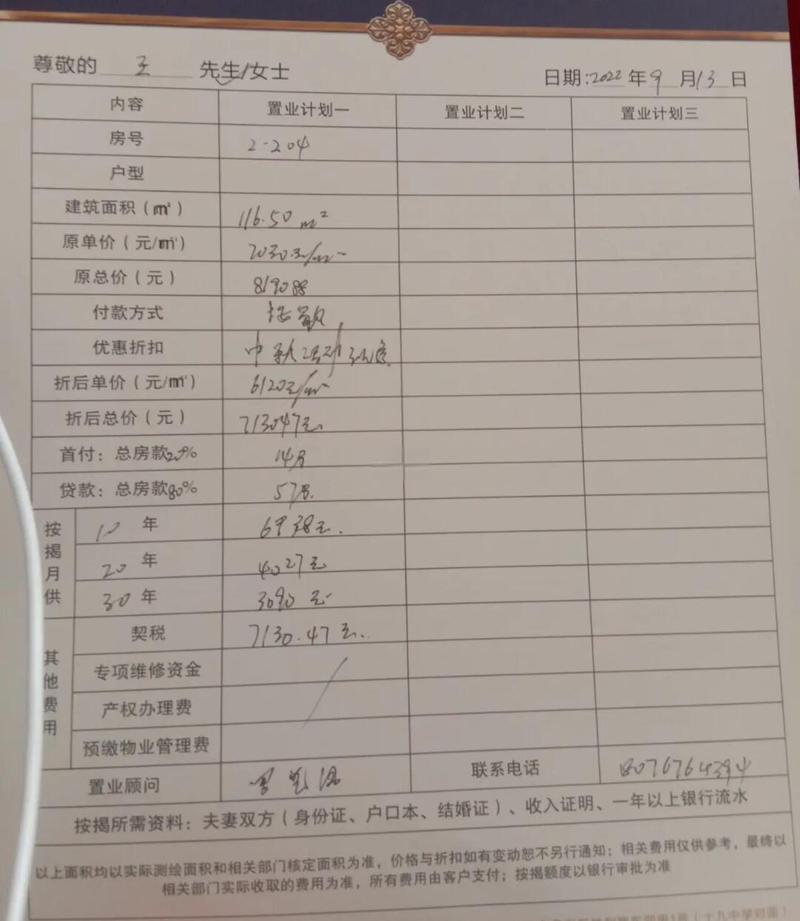 尊敬的 王 先生/女士
日期:2022年9月13日
内容 置业计划一 置业计划二 置业计划三
房号 2-204
户型
建筑面积(㎡) 116.50 m²
原单价(元/㎡)
原总价(元) 819088
付款方式
优惠折扣 中秋活动
折后单价(元/㎡) 6120元/m²
折后总价(元) 713047元
首付:总房款20% 14万
贷款:总房款80% 57万
按揭月供
10年 6938元
20年 4027元
30年 3090元
其他费用
契税 7130.47元
专项维修资金
产权办理费
预缴物业管理费
置业顾问 联系电话
按揭所需资料:夫妻双方(身份证、户口本、结婚证)、收入证明、一年以上银行流水
以上面积均以实际测绘面积和相关部门核定面积为准,价格与折扣如有变动恕不另行通知;相关费用仅供参考,最终以
相关部门实际收取的费用为准,所有费用由客户支付;按揭额度以银行审批为准